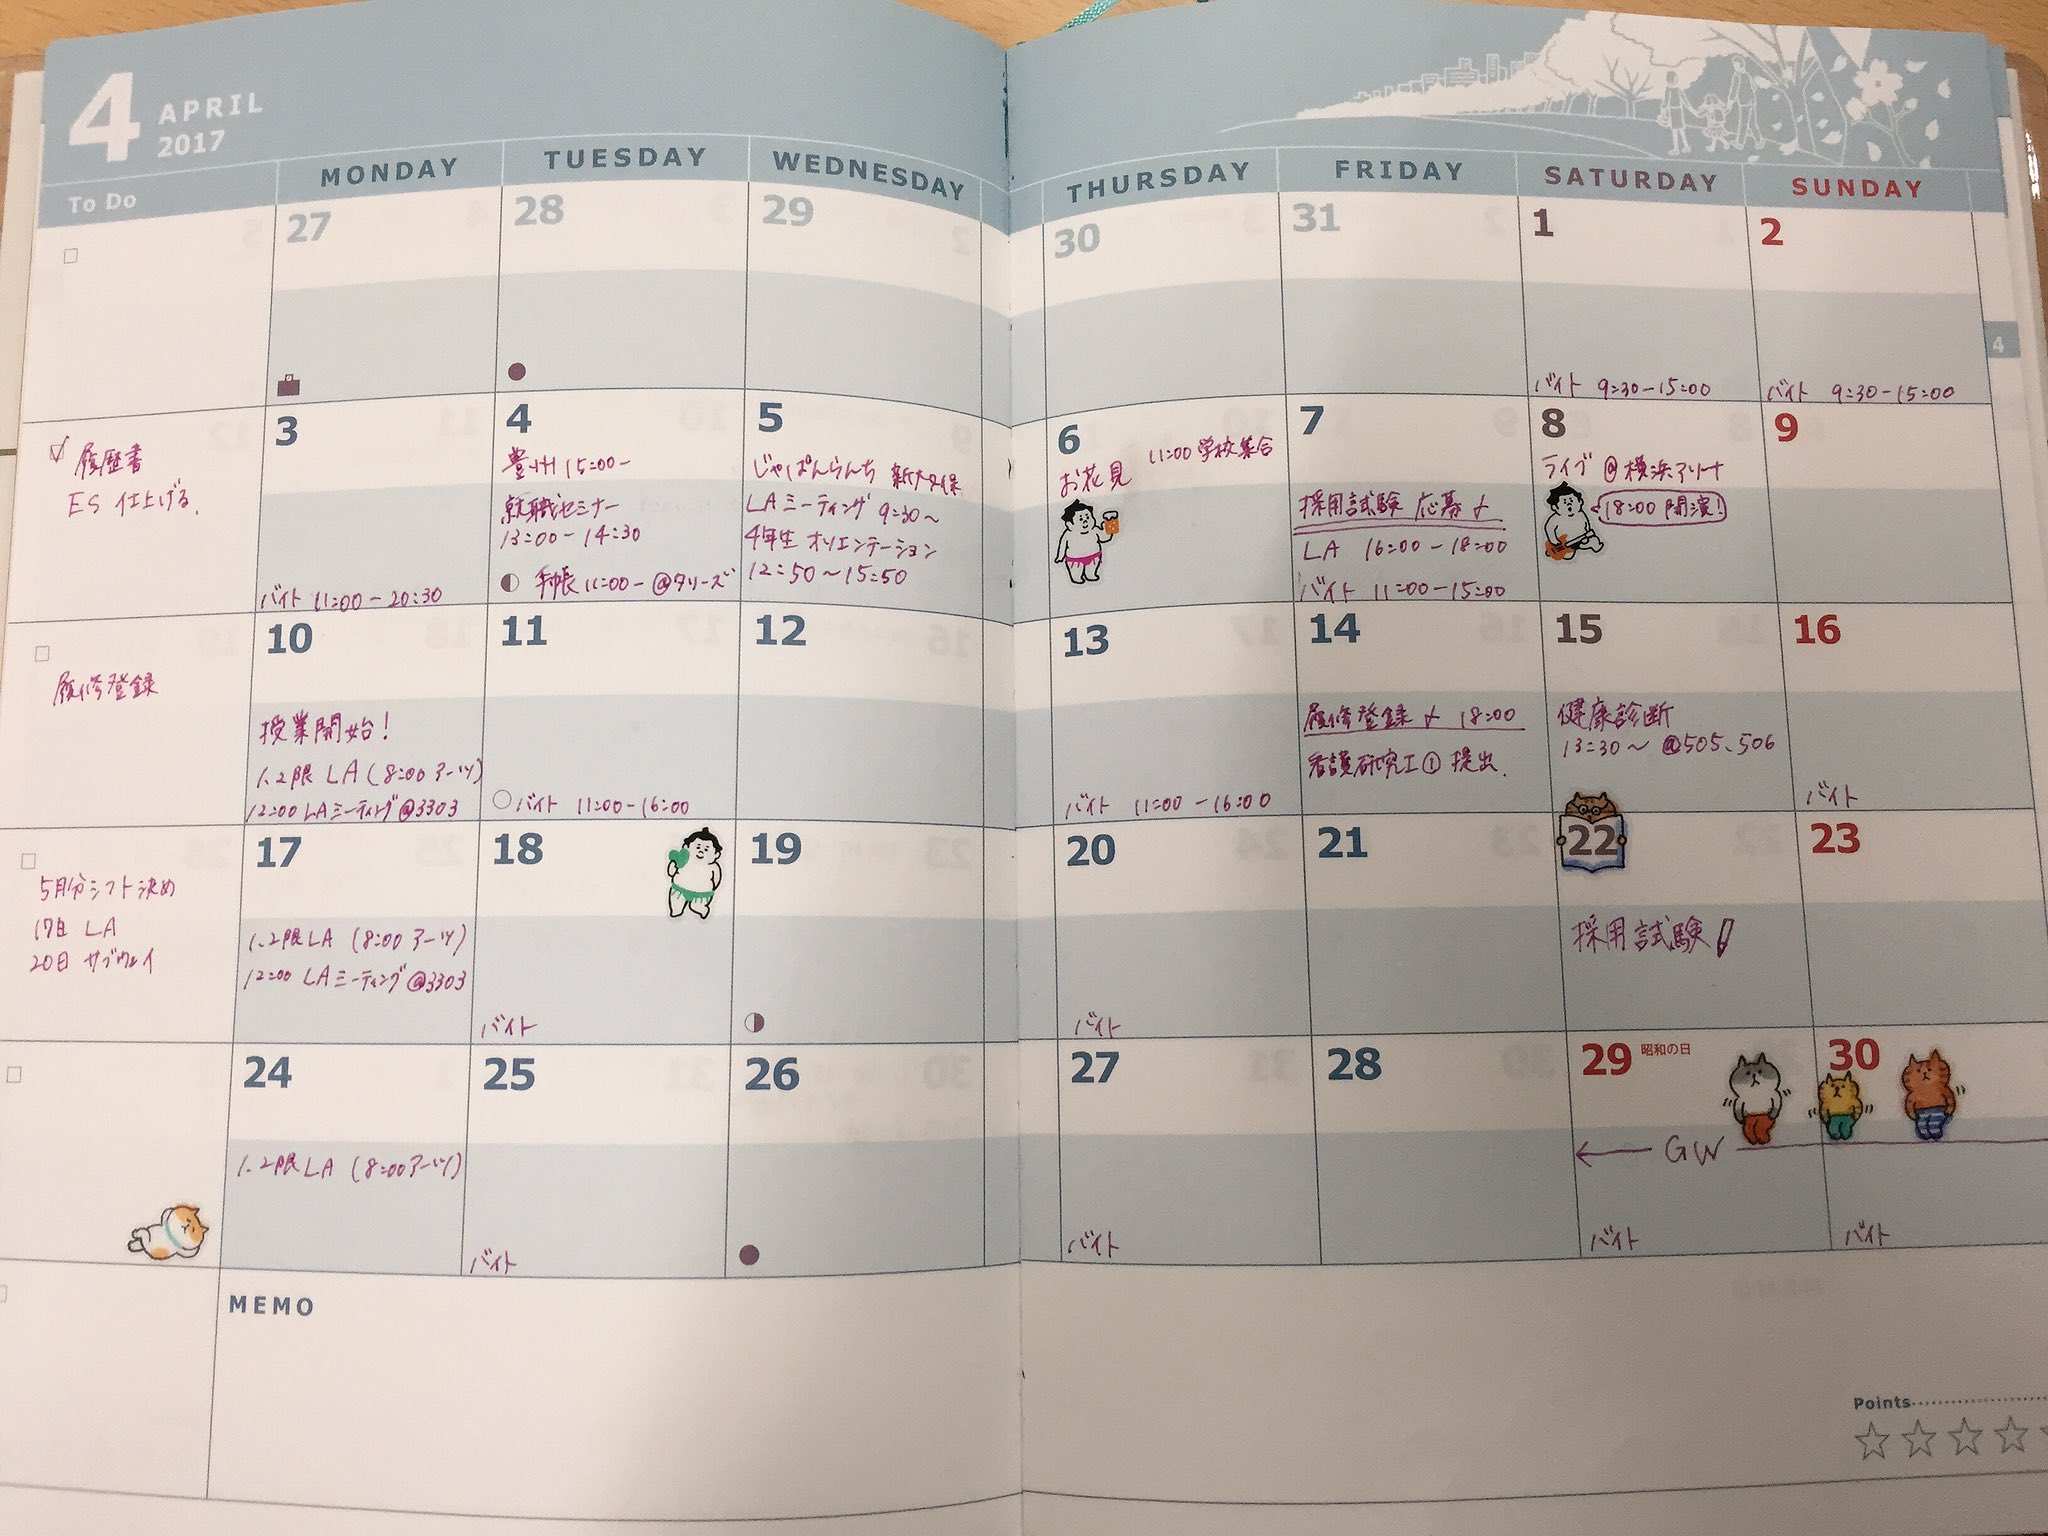 4 APRIL
2017
To Do
MONDAY TUESDAY WEDNESDAY THURSDAY FRIDAY SATURDAY SUNDAY
27 28 29 30 31 1 2
バイト 9:30-15:00
バイト 9:30-15:00
履歴書
ES 仕上げる.
3
バイト 11:00-20:30
4
豊州 15:00-
就職セミナー
13:00-14:30
手帳 11:00- @タリーズ
5
じゃぱんらんち 新大久保
LAミーティング 9:30～
4年生 オリエンテーション
12:50～15:50
6
11:00 学校集合
お花見
7
採用試験 応募〆
LA 16:00-18:00
バイト 11:00-15:00
8
ライブ @横浜アリーナ
18:00 開演!
9
履修登録
10
授業開始!
1.2限 LA (8:00 アーツ)
12:00 LAミーティング@3303
11
バイト 11:00-16:00
12
13
バイト 11:00-16:00
14
履修登録〆 18:00
看護研究I① 提出.
15
健康診断
13:30～ @505、506
16
バイト
5月分シフト決め
17日 LA
20日 サブウェイ
17
1.2限LA (8:00 アーツ)
12:00 LAミーティング@3303
18
バイト
19
20
バイト
21
22
採用試験
23
24
1.2限LA (8:00アーツ)
25
バイト
26
27
バイト
28
29 昭和の日
GW
バイト
30
バイト
MEMO
Points
4